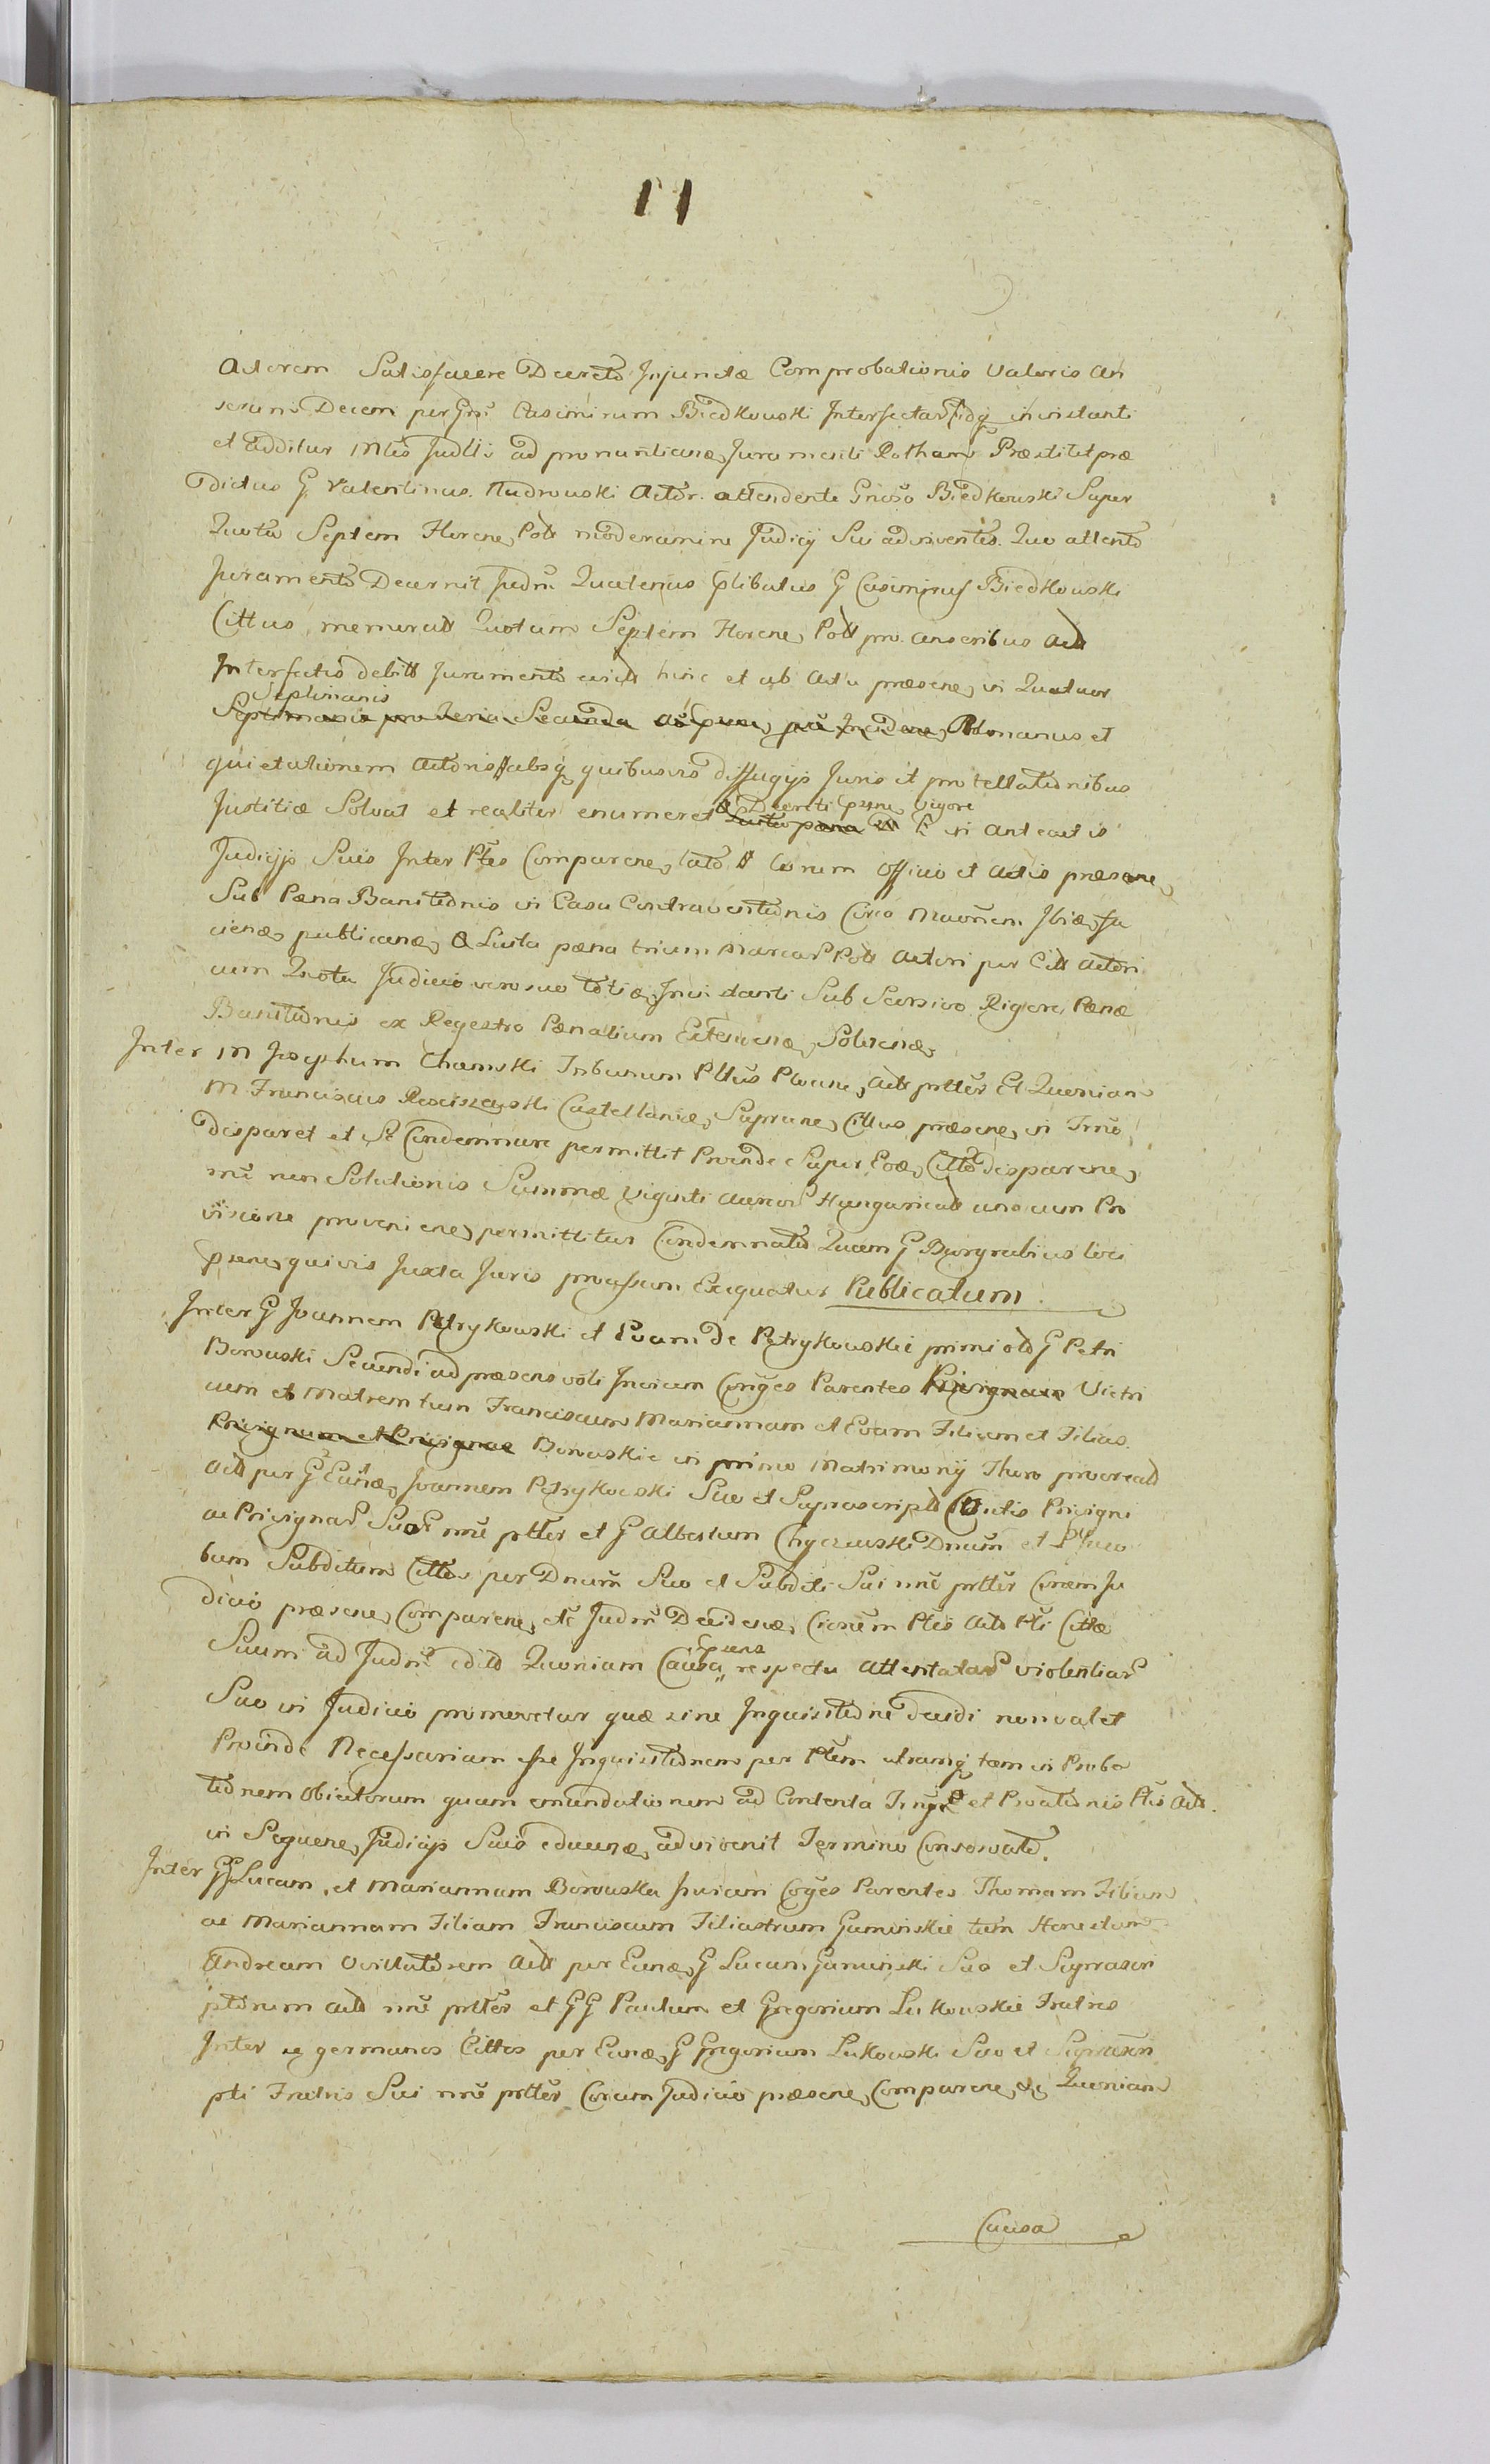 11
Actorem Satisfacere Decreto Injunctæ Comprobationis Valoris An
serum Decem per Gn̄m Casimirum Biedkowski Interfectar idq in instanti
et additur Mtis Judlis ad pronuntiane Juramenti Rotham Præstitet præ
dictus G Valentinus Rudrowski Actor. attendente Gnoso Biedkowski Super
Quota Septem Florene Poll moderamine Judicij Sui adinventis. Quo attento
Juramento Decernit Judm Quatenus plibatus G Casimirus Biedkowski
Cittus, memorat Quotam Septem Florene Poll pro anseribus Act
Interfectis debitt Juramento evict hinc et ab Actu præsene in Quatuor
Septimanis
Septimanis pro Feria Secunda manus et
quietationem Actoris absq quibusvis diffugijs Juris et protellationibus
Decreti psene vigore
Justitiæ Solvat et realiter enumeret Luita pæna in anteact is
Judicijs Suis Inter Ptes Comparene lato Coram Officio et Actis præsene
Sub Pæna Banitionis in Casu Contraventionis Circa Ibiæ fa
ciene publicane Luita pæna trium Marcar Poll Actori per Citt Actori
cum Quota Judicio vero suo totiæ Inci danti Sub Sursivo Rigore Pænæ
Banitionis ex Regestro Pænalium Extenciæ Solvenæ
Inter M Josephum Chamski Tribunum Pltus Plocine Act prtter Et Quonian
M Franciscus Rosciszewski Castellanic Suprene Cittus præsene in Trno
disparet et Se Condemnare permittit Proinde Super Eoæ Citto disparene
rne non Solutionis Summæ Viginti Aureor Hungaricalt una cum Pro
visione proveniene permittitur Condemnatio Quam G Burgrabius loci
psene quivis Juxta Juris processum Exequatur Publicatum
Inter G Joannem Petrykowski et Evam de Petrykowskie primi olt G Petri
Borowski Secundi ad præsens voti Invicem Conges Parentes Privignam Victri
cum et Matrem tum Franciscum Mariannam et Evam Filium et Filias
Privignum et Privignas Borowskie in primo Matrimonij Thoro procreatt
Act per G Eunæ Joannem Petrykowski Suo et Suprascript Victis Privigni
ac Privignar Suor nne prtter et G Albertum Chyczewski Dnum et Jaco
bum Subditum Cittos per Dnum Suo et Subditi Sui nne prtter Coram Ju
dicio præsene Comparene etc Judm Decidenæ Cionem Ptis Act Pti Cittæ
psens
Suum ad Judm edito Quoniam Causa respectu Attentatar violentiar
Suo in Judicio promovetur quæ sine Inquisitione decidi non valet
Proinde Necessariam esse Inquisitionem per Ptem utramq tam in Proba
tionem Objectorum quam emundationem ad Contenta et Ptis Act.
in Sequene Judicijs Suis educenæ adinvenit Termino Conservato.
Inter GG Lucam et Mariannam Borowska Invicem Conges Parentes Thomam Filium
ac Mariannam Filiam Franciscum Filiastrum Guminskie tum Honestum
Andream Act per Eunæ G Lucam Guminski Suo et Suprascri
ptorum Act nne prtter et GG Paulum et Gregorium Lukowskie Fratres
Inter se germanos Cittos per Eunæ G Gregorium Lukowski Suo et Suprascri
pti Fratris Sui nne prtter Coram Judicio præsene Comparene etc Quoniam
Causa